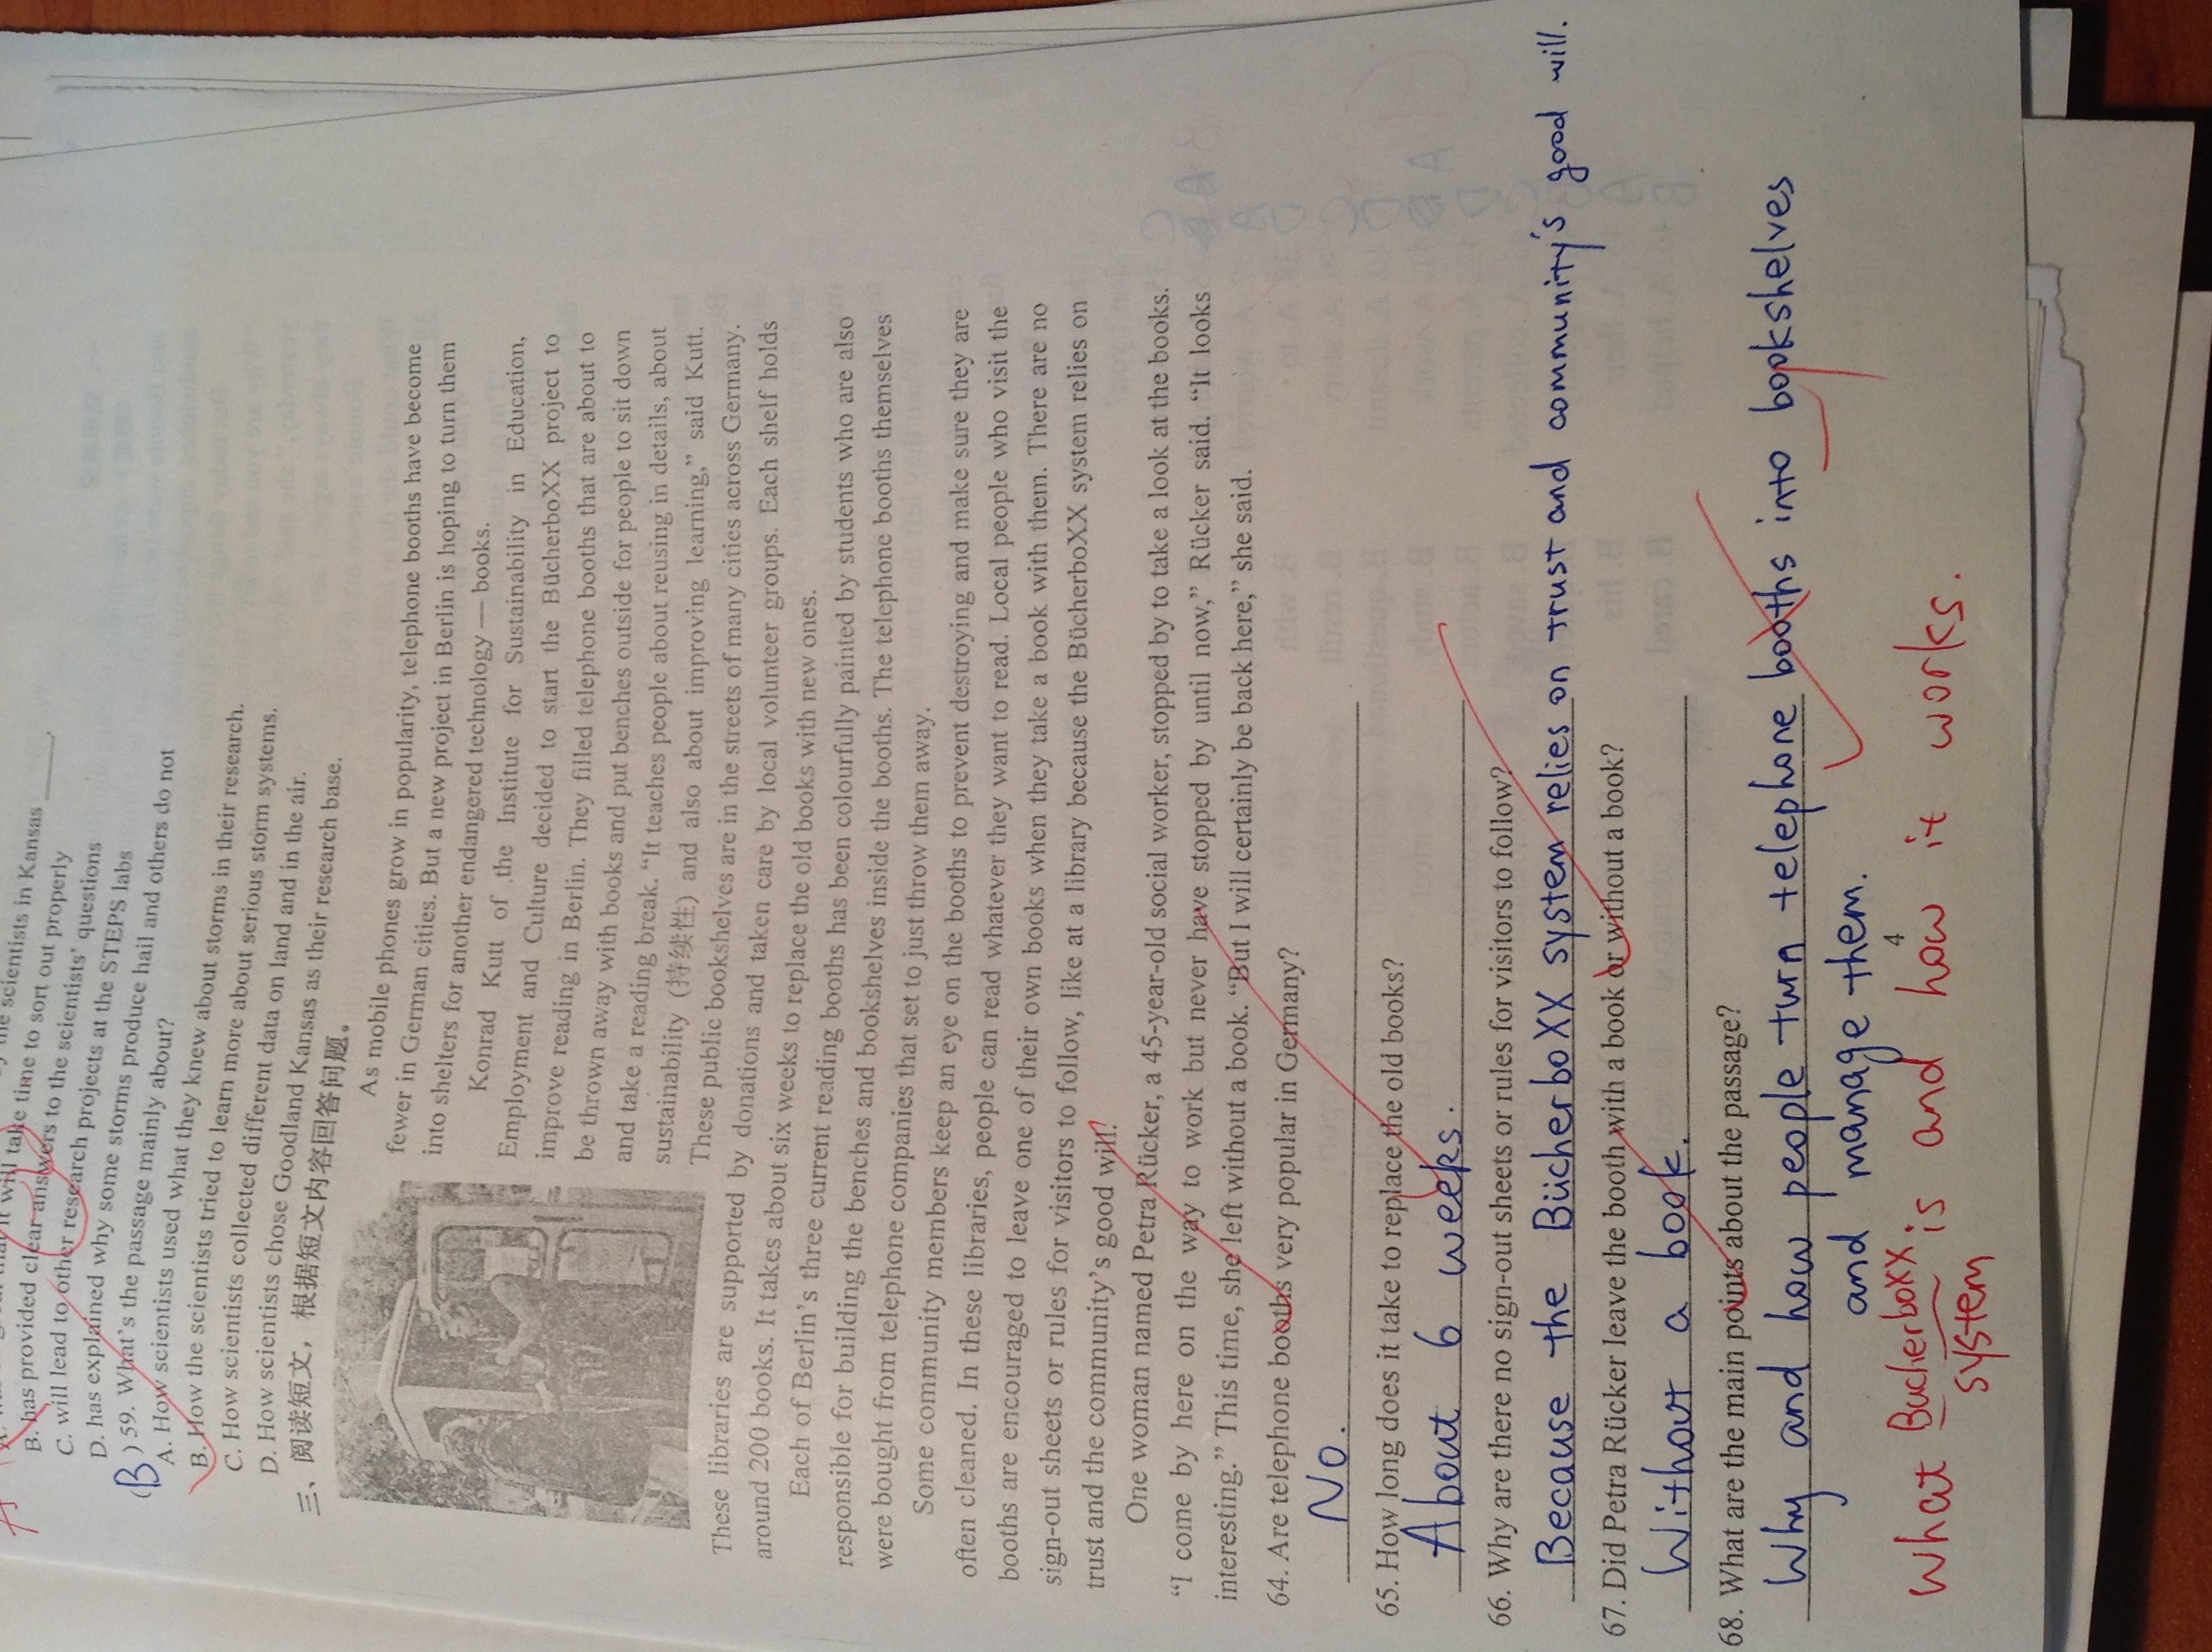 it will take time to sort out properly
the scientists in Kansas ____.
B. has provided clear answers to the scientists' questions
C. will lead to other research projects at the STEPS labs
D. has explained why some storms produce hail and others do not
(B) 59. What's the passage mainly about?
A. How scientists used what they knew about storms in their research.
B. How the scientists tried to learn more about serious storm systems.
C. How scientists collected different data on land and in the air.
D. How scientists chose Goodland Kansas as their research base.
三、阅读短文，根据短文内容回答问题。
As mobile phones grow in popularity, telephone booths have become
fewer in German cities. But a new project in Berlin is hoping to turn them
into shelters for another endangered technology — books.
Konrad Kutt of the Institute for Sustainability in Education,
Employment and Culture decided to start the BücherboXX project to
improve reading in Berlin. They filled telephone booths that are about to
be thrown away with books and put benches outside for people to sit down
and take a reading break. “It teaches people about reusing in details, about
sustainability (持续性) and also about improving learning,” said Kutt.
These public bookshelves are in the streets of many cities across Germany.
These libraries are supported by donations and taken care by local volunteer groups. Each shelf holds
around 200 books. It takes about six weeks to replace the old books with new ones.
Each of Berlin's three current reading booths has been colourfully painted by students who are also
responsible for building the benches and bookshelves inside the booths. The telephone booths themselves
were bought from telephone companies that set to just throw them away.
Some community members keep an eye on the booths to prevent destroying and make sure they are
often cleaned. In these libraries, people can read whatever they want to read. Local people who visit the
booths are encouraged to leave one of their own books when they take a book with them. There are no
sign-out sheets or rules for visitors to follow, like at a library because the BücherboXX system relies on
trust and the community's good will.
One woman named Petra Rücker, a 45-year-old social worker, stopped by to take a look at the books.
“I come by here on the way to work but never have stopped by until now,” Rücker said. “It looks
interesting.” This time, she left without a book. “But I will certainly be back here,” she said.
64. Are telephone booths very popular in Germany?
No.
65. How long does it take to replace the old books?
About 6 weeks.
66. Why are there no sign-out sheets or rules for visitors to follow?
Because the BücherboXX system relies on trust and community's good will.
67. Did Petra Rücker leave the booth with a book or without a book?
Without a book.
68. What are the main points about the passage?
Why and how people turn telephone booths into bookshelves
and manage them.
4
What BucherboXX is and how it works.
system